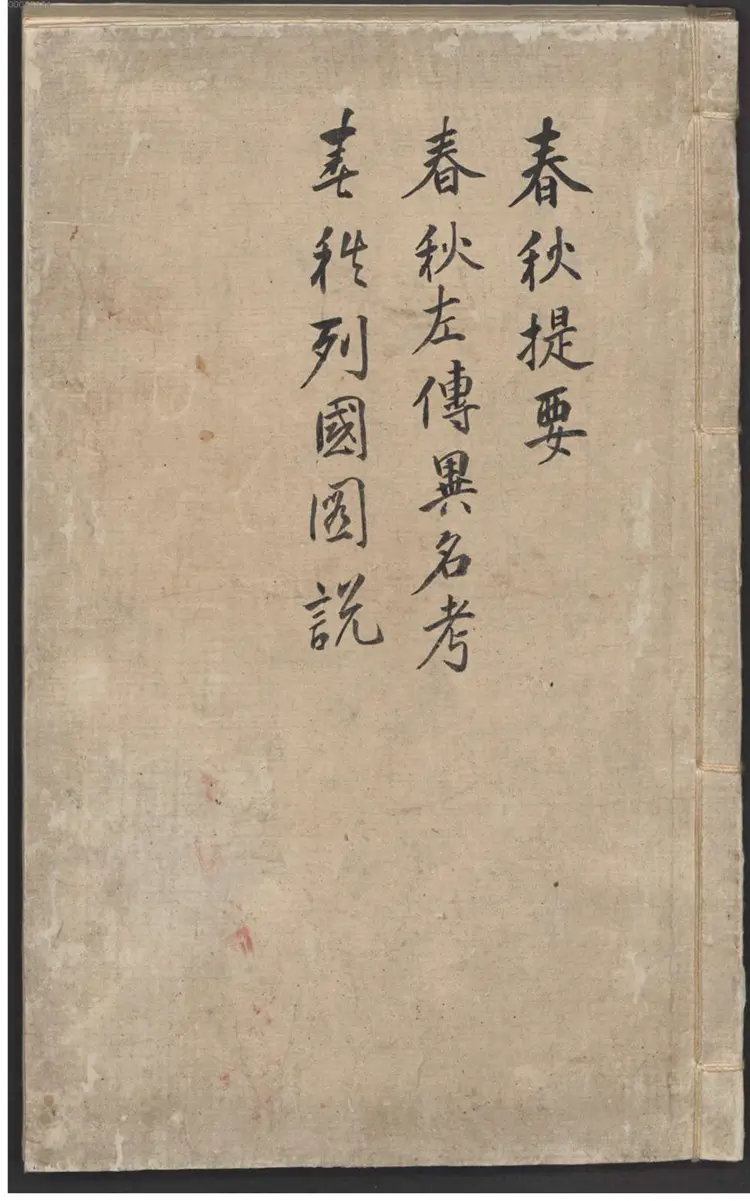 春秋提要
春秋左傳異名考
春秋列國圖説